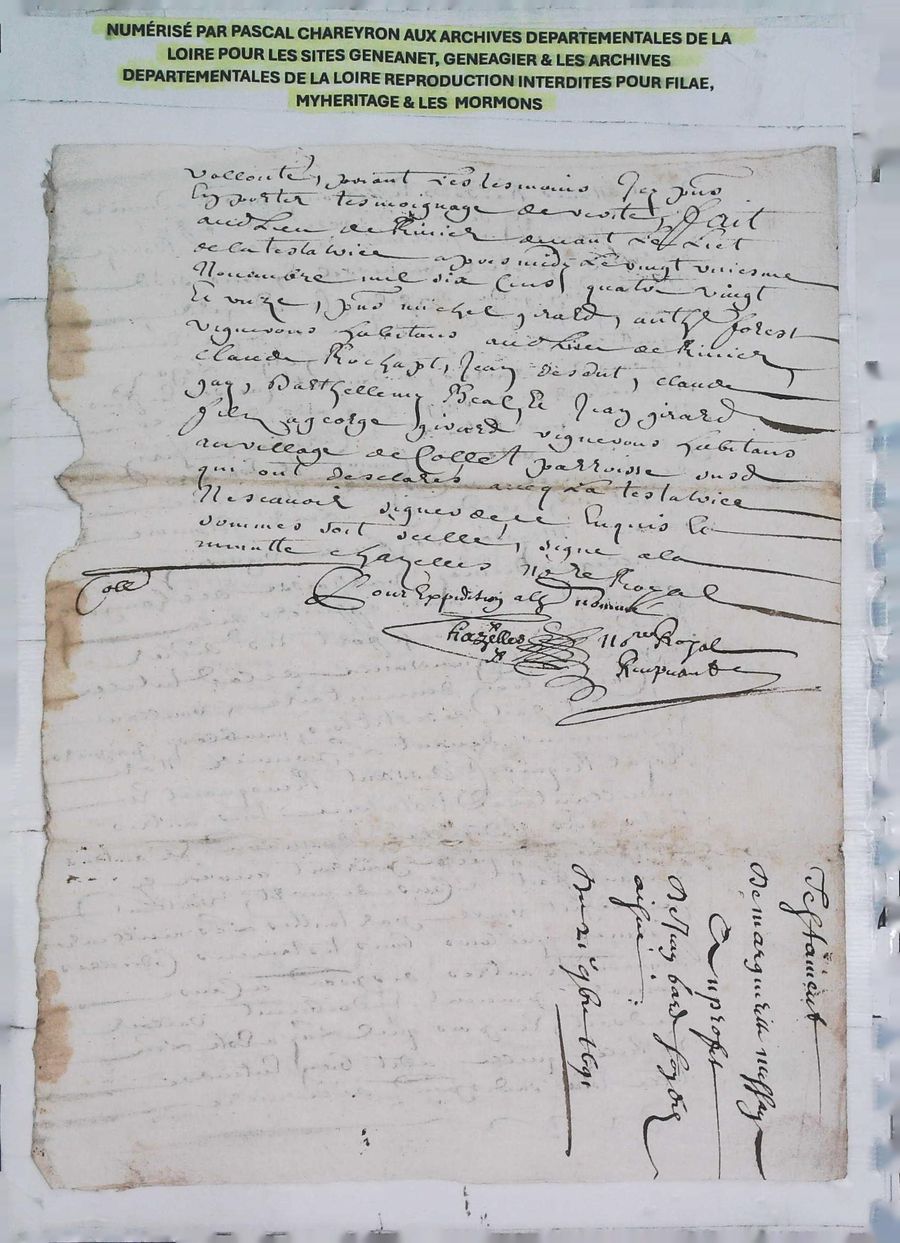 NUMÉRISÉ PAR PASCAL CHAREYRON AUX ARCHIVES DEPARTEMENTALES DE LA
LOIRE POUR LES SITES GENEANET, GENEAGIER & LES ARCHIVES
DEPARTEMENTALES DE LA LOIRE REPRODUCTION INTERDITES POUR FILAE,
MYHERITAGE & LES MORMONS
vollonté, priant les tesmoins icy pnts
en porter tesmoignage de verité, ffait
aud lieu de devant le lict
de la testatrice apres midy le vingt uniesme
Nouambre mil six cens quatre vingt
Et unze, pnts michel girard, anthe forest
vignerons habitans aud lieu de
claude Jean claude
gay, Barthellemy Beal, Et Jean girard
filz a george girard vignerons habitans
au village de Collet parroisse susd
qui ont desclarés aveq la testatrice
Ne scavoir signer de ce Enquis Et
sommés soit sellé, signé a la
minutte Chazelles Nore Royal
Coll
Pour Expedition
Chazelles Nore Royal
Testament
De marguerite
Au proffit
De Jean bard
Du 21 9bre 1691